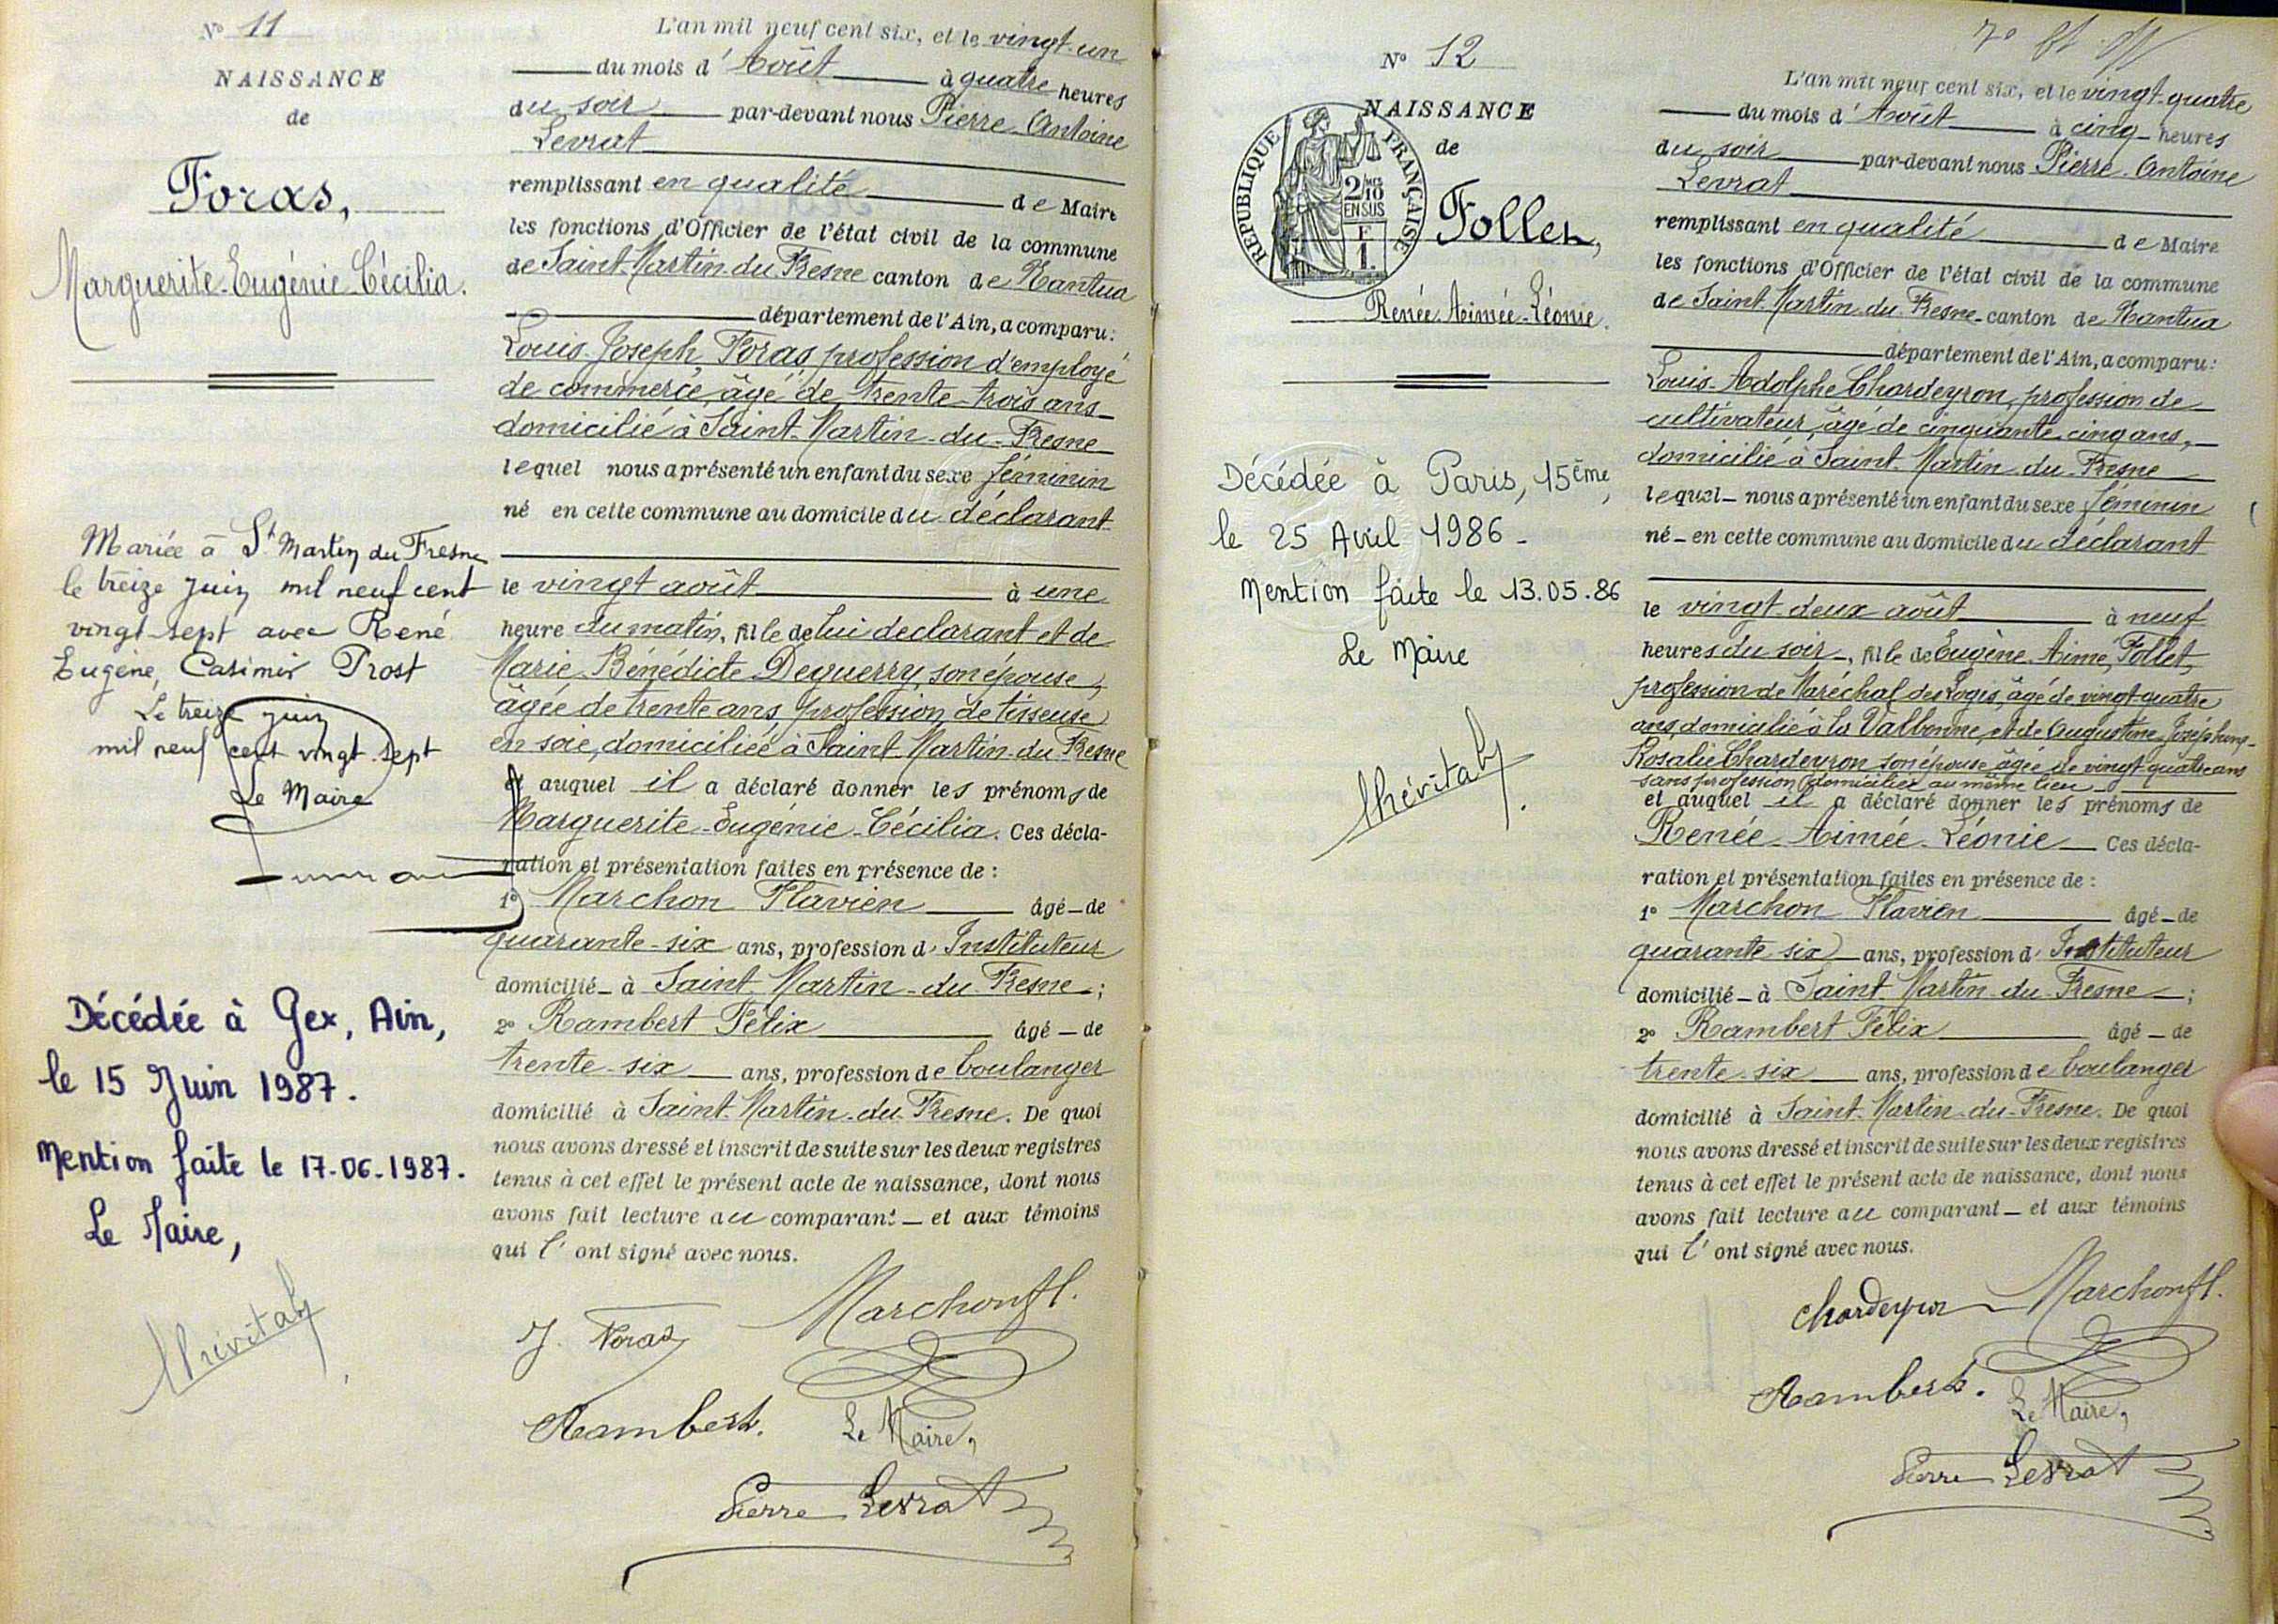 N° 11
NAISSANCE
de
Foras,
Marguerite-Eugénie-Cécilia.
Mariée à St Martin du Fresne
le treize juin mil neuf cent
vingt-sept avec René
Eugène, Casimir Prost
Le treize juin
mil neuf cent vingt-sept
Le Maire
Décédée à Gex, Ain,
le 15 Juin 1987.
Mention faite le 17-06-1987.
Le Maire,
L'an mil neuf cent six, et le vingt-un
du mois d'Août à quatre heures
du soir par-devant nous Pierre-Antoine
Levrat
remplissant en qualité de Maire
les fonctions d'Officier de l'état civil de la commune
de Saint-Martin-du-Fresne canton de Nantua
département de l'Ain, a comparu:
Louis-Joseph Foras, profession d'employé
de commerce, âgé de trente-trois ans
domicilié à Saint-Martin-du-Fresne
lequel nous a présenté un enfant du sexe féminin
né en cette commune au domicile du déclarant
le vingt août à une
heure du matin, fille de lui déclarant et de
Marie-Bénédicte Deguerry, son épouse,
âgée de trente ans, profession de tisseuse
en soie, domiciliée à Saint-Martin-du-Fresne
et auquel il a déclaré donner les prénoms de
Marguerite-Eugénie-Cécilia. Ces décla-
ration et présentation faites en présence de :
1° Marchon Flavien âgé de
quarante-six ans, profession d'Instituteur
domicilié à Saint-Martin-du-Fresne ;
2° Rambert Félix âgé de
trente-six ans, profession de boulanger
domicilié à Saint-Martin-du-Fresne. De quoi
nous avons dressé et inscrit de suite sur les deux registres
tenus à cet effet le présent acte de naissance, dont nous
avons fait lecture au comparant et aux témoins
qui l'ont signé avec nous.
J. Foras Marchon fl.
Rambert. Le Maire,
Pierre Levrat
N° 12
NAISSANCE
de
RÉPUBLIQUE FRANÇAISE
2/10 MES
EN SUS
F
1.
Follet,
Renée-Aimée-Léonie.
Décédée à Paris, 15ème,
le 25 Avril 1986-
Mention faite le 13.05.86
Le Maire
L'an mil neuf cent six, et le vingt-quatre
du mois d'Août à cinq heures
du soir par-devant nous Pierre-Antoine
Levrat
remplissant en qualité de Maire
les fonctions d'Officier de l'état civil de la commune
de Saint-Martin-du-Fresne canton de Nantua
département de l'Ain, a comparu:
Louis-Adolphe Chardeyron, profession de
cultivateur, âgé de cinquante-cinq ans,
domicilié à Saint-Martin-du-Fresne
lequel nous a présenté un enfant du sexe féminin
né en cette commune au domicile du déclarant
le vingt-deux août à neuf
heures du soir, fille de Eugène-Aimé, Follet,
profession de Maréchal des Logis, âgé de vingt-quatre
ans, domicilié à la Valbonne, et de Augustine-Joséphine-
Rosalie Chardeyron son épouse âgée de vingt-quatre ans
sans profession domiciliée au même lieu
et auquel il a déclaré donner les prénoms de
Renée-Aimée-Léonie Ces décla-
ration et présentation faites en présence de :
1° Marchon Flavien âgé de
quarante-six ans, profession d'Instituteur
domicilié à Saint-Martin-du-Fresne ;
2° Rambert Félix âgé de
trente-six ans, profession de boulanger
domicilié à Saint-Martin-du-Fresne. De quoi
nous avons dressé et inscrit de suite sur les deux registres
tenus à cet effet le présent acte de naissance, dont nous
avons fait lecture au comparant et aux témoins
qui l'ont signé avec nous.
Chardeyron Marchon fl.
Rambert. Le Maire,
Pierre Levrat